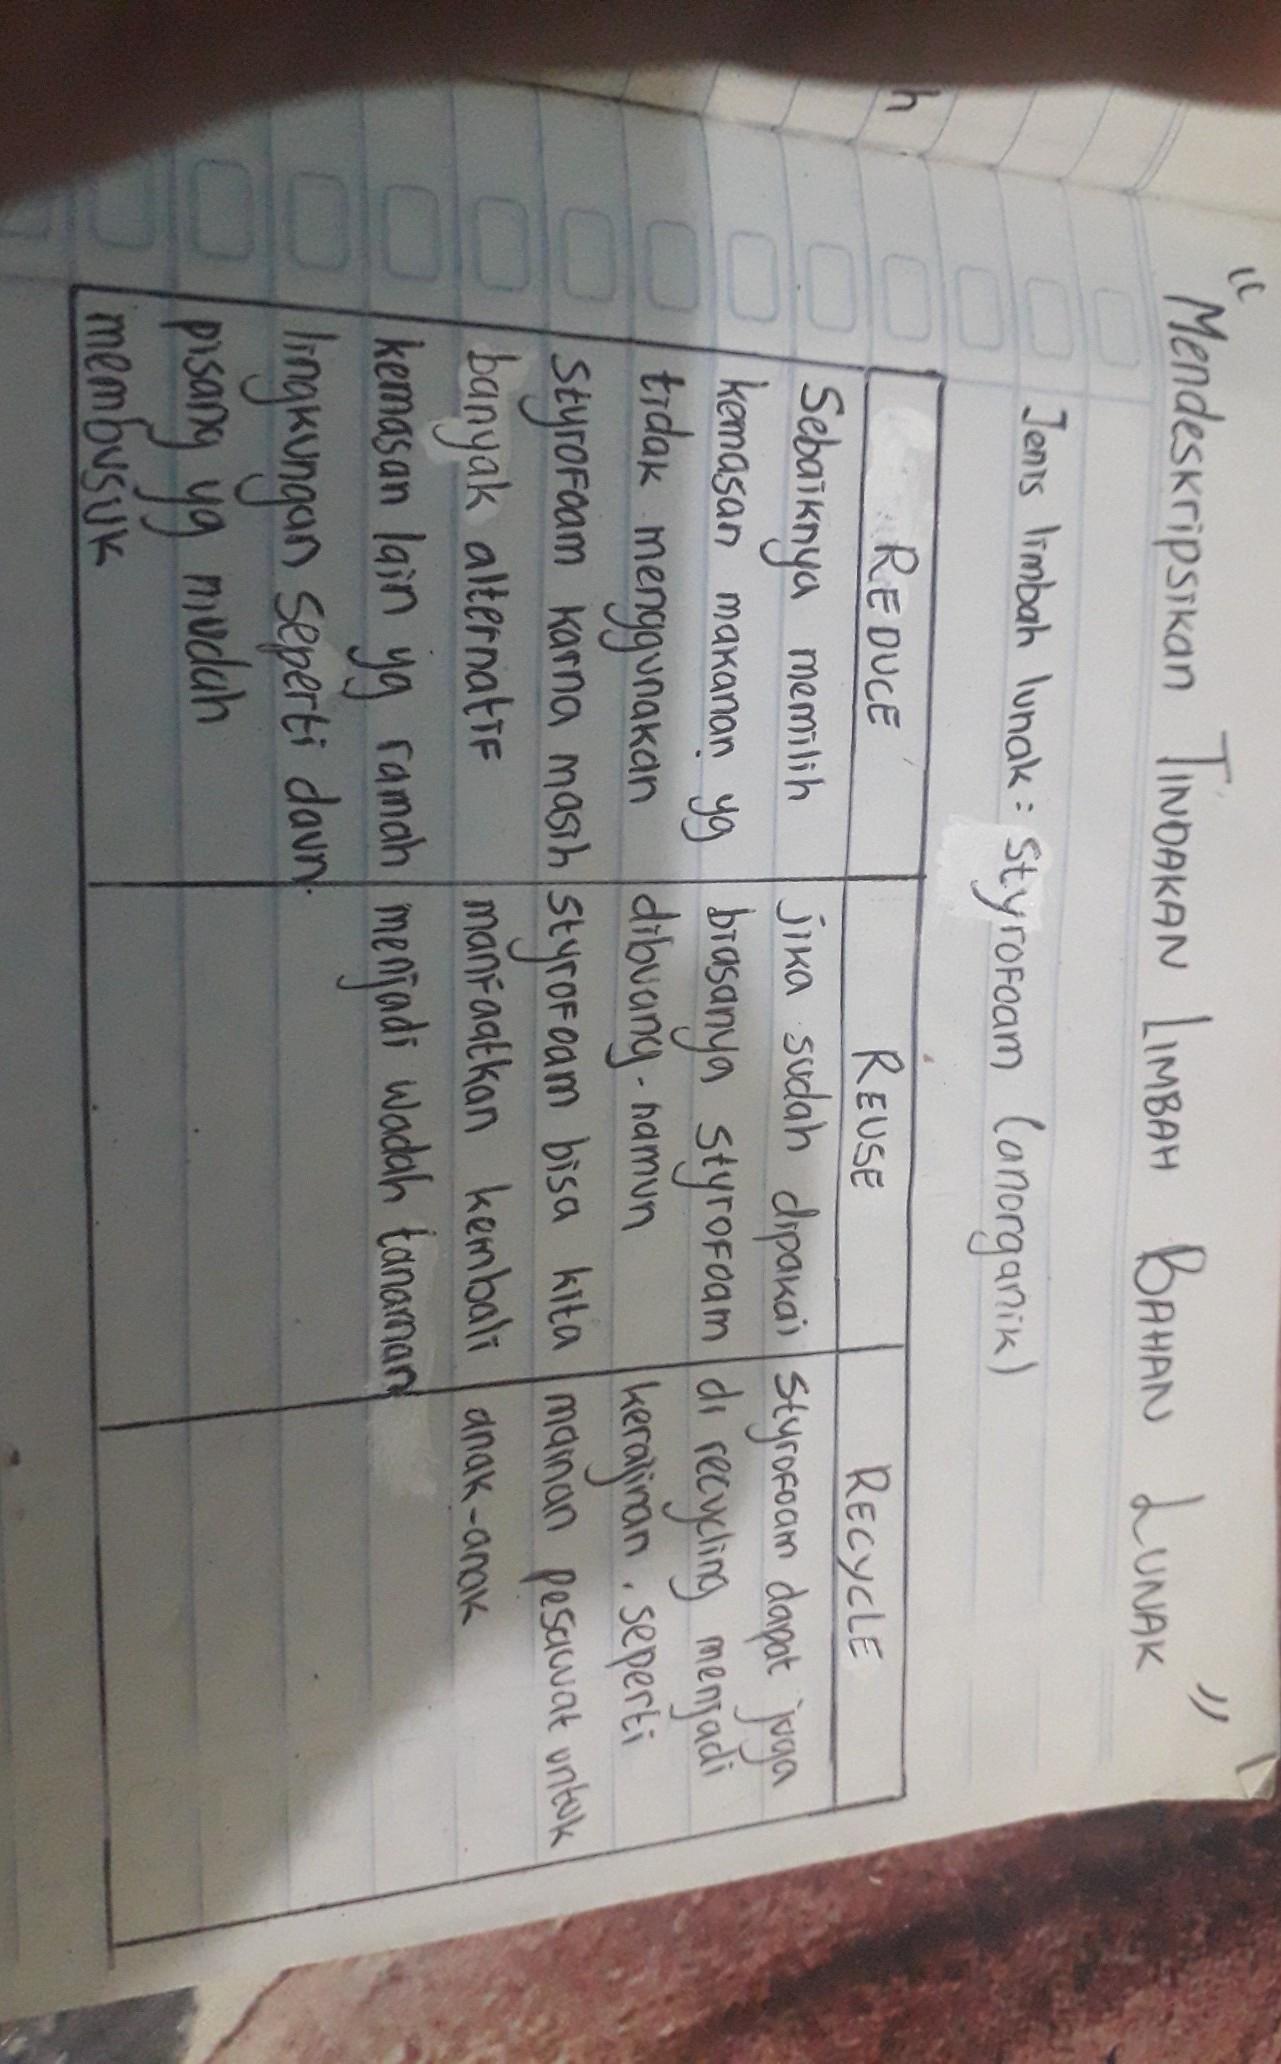 h
" Mendeskripsikan TINDAKAN LIMBAH BAHAN LUNAK "
Jenis limbah lunak : Styrofoam (anorganik)
REDUCE
Sebaiknya memilih
kemasan makanan yg
tidak menggunakan
Styrofoam karna masih
banyak alternatif
kemasan lain yg ramah
lingkungan seperti daun.
pisang yg mudah
membusuk
REUSE
jika sudah dipakai
biasanya styrofoam
dibuang. namun
styrofoam bisa kita
manfaatkan kembali
menjadi wadah tanaman
RECYCLE
Styrofoam dapat juga
di recycling menjadi
kerajinan. seperti
mainan pesawat untuk
anak-anak